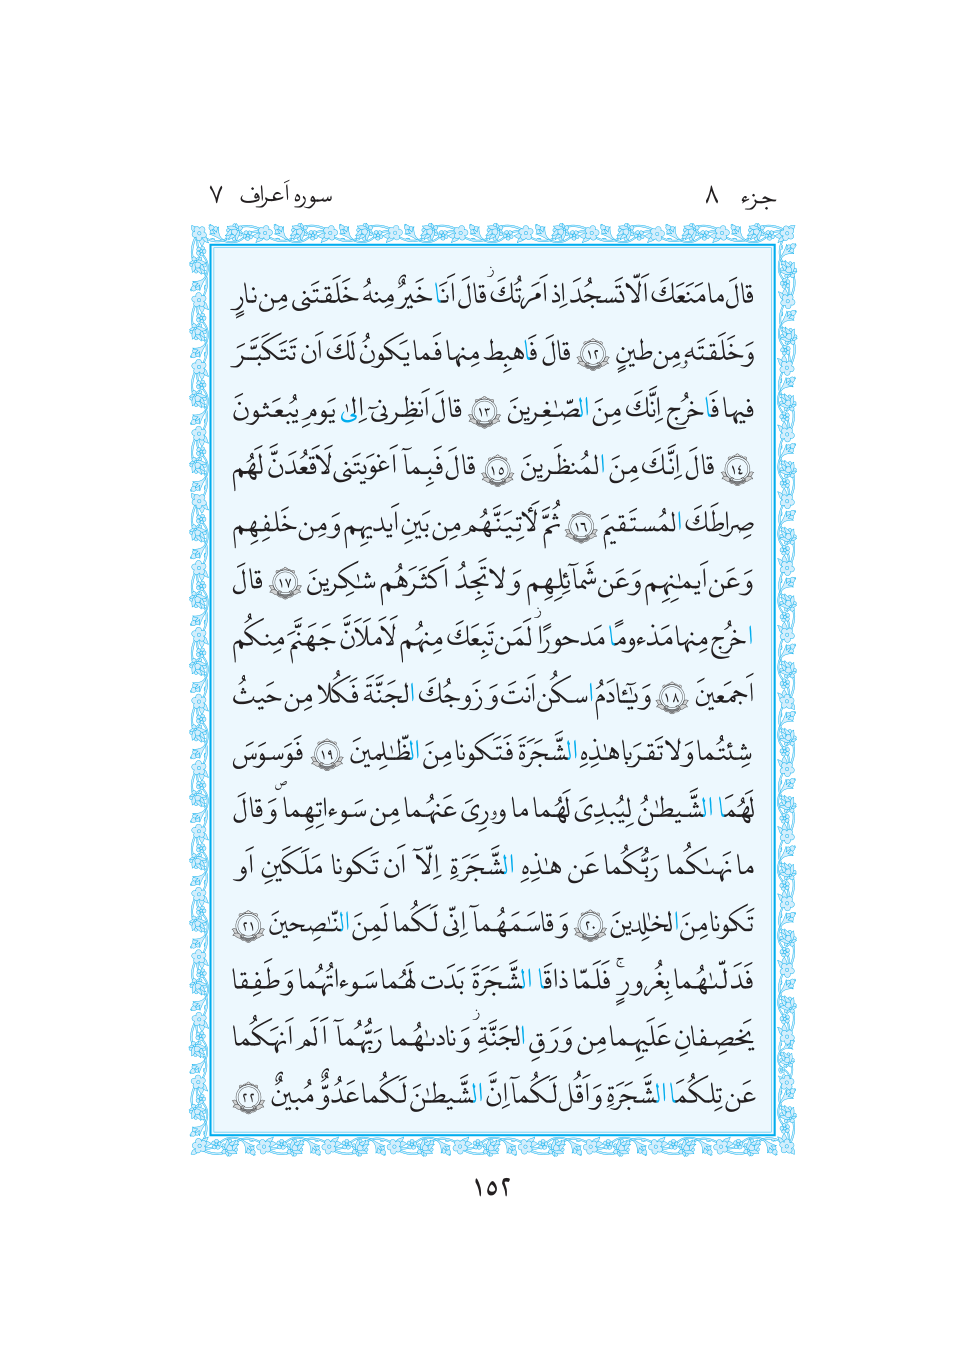 جزء ٨ سوره اَعراف ٧
قالَ ما مَنَعَكَ اَلّا تَسجُدَ اِذ اَمَرتُكَ ز قالَ اَنَا خَيرٌ مِنهُ خَلَقتَنى مِن نارٍ
وَ خَلَقتَهو مِن طينٍ ١٢ قالَ فَاهبِط مِنها فَما يَكونُ لَكَ اَن تَتَكَبَّرَ
فيها فَاخرُج اِنَّكَ مِنَ الصّٰغِرينَ ١٣ قالَ اَنظِرنىٓ اِلىٰ يَومِ يُبعَثونَ
١٤ قالَ اِنَّكَ مِنَ المُنظَرينَ ١٥ قالَ فَبِمآ اَغوَيتَنى لَاَقعُدَنَّ لَهُم
صِراطَكَ المُستَقيمَ ١٦ ثُمَّ لَاٰتِيَنَّهُم مِن بَينِ اَيديهِم وَ مِن خَلفِهِم
وَ عَن اَيمٰنِهِم وَ عَن شَمآئِلِهِم وَ لا تَجِدُ اَكثَرَهُم شٰكِرينَ ١٧ قالَ
اخرُج مِنها مَذءومًا مَدحورًا ز لَمَن تَبِعَكَ مِنهُم لَاَملَاَنَّ جَهَنَّمَ مِنكُم
اَجمَعينَ ١٨ وَ يٰٓـٔادَمُ اسكُن اَنتَ وَ زَوجُكَ الجَنَّةَ فَكُلا مِن حَيثُ
شِئتُما وَ لا تَقرَبا هٰذِهِ الشَّجَرَةَ فَتَكونا مِنَ الظّٰلِمينَ ١٩ فَوَسوَسَ
لَهُمَا الشَّيطٰنُ لِيُبدِىَ لَهُما ما وورِىَ عَنهُما مِن سَوءاتِهِما ص وَ قالَ
ما نَهىٰكُما رَبُّكُما عَن هٰذِهِ الشَّجَرَةِ اِلّآ اَن تَكونا مَلَكَينِ اَو
تَكونا مِنَ الخٰلِدينَ ٢٠ وَ قاسَمَهُمآ اِنّى لَكُما لَمِنَ النّٰصِحينَ ٢١
فَدَلّىٰهُما بِغُرورٍ ج فَلَمّا ذاقَا الشَّجَرَةَ بَدَت لَهُما سَوءاتُهُما وَ طَفِقا
يَخصِفانِ عَلَيهِما مِن وَرَقِ الجَنَّةِ ز وَ نادىٰهُما رَبُّهُمآ اَلَم اَنهَكُما
عَن تِلكُمَا الشَّجَرَةِ وَ اَقُل لَكُمآ اِنَّ الشَّيطٰنَ لَكُما عَدُوٌّ مُبينٌ ٢٢
١٥٢